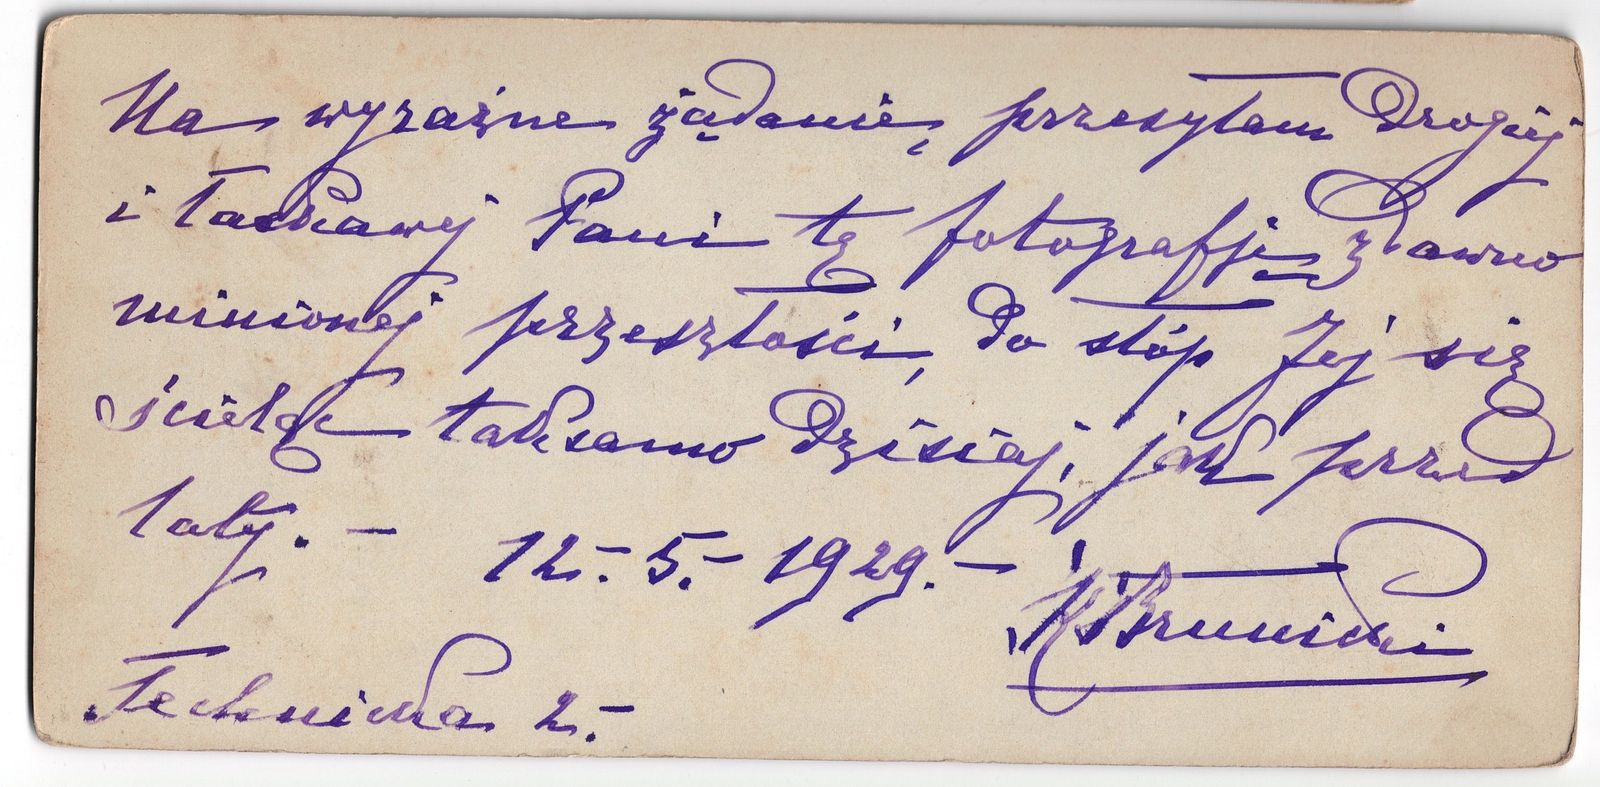 Na wyraźne żądanie, przesyłam Drogiej
i Łaskawej Pani tę fotografję z dawno
minionej przeszłości, do stóp Jej się
ścieląc taksamo dzisiaj, jak przed
laty. –
12.–5.–1929.–
KBrunicki
Technicka 2.–